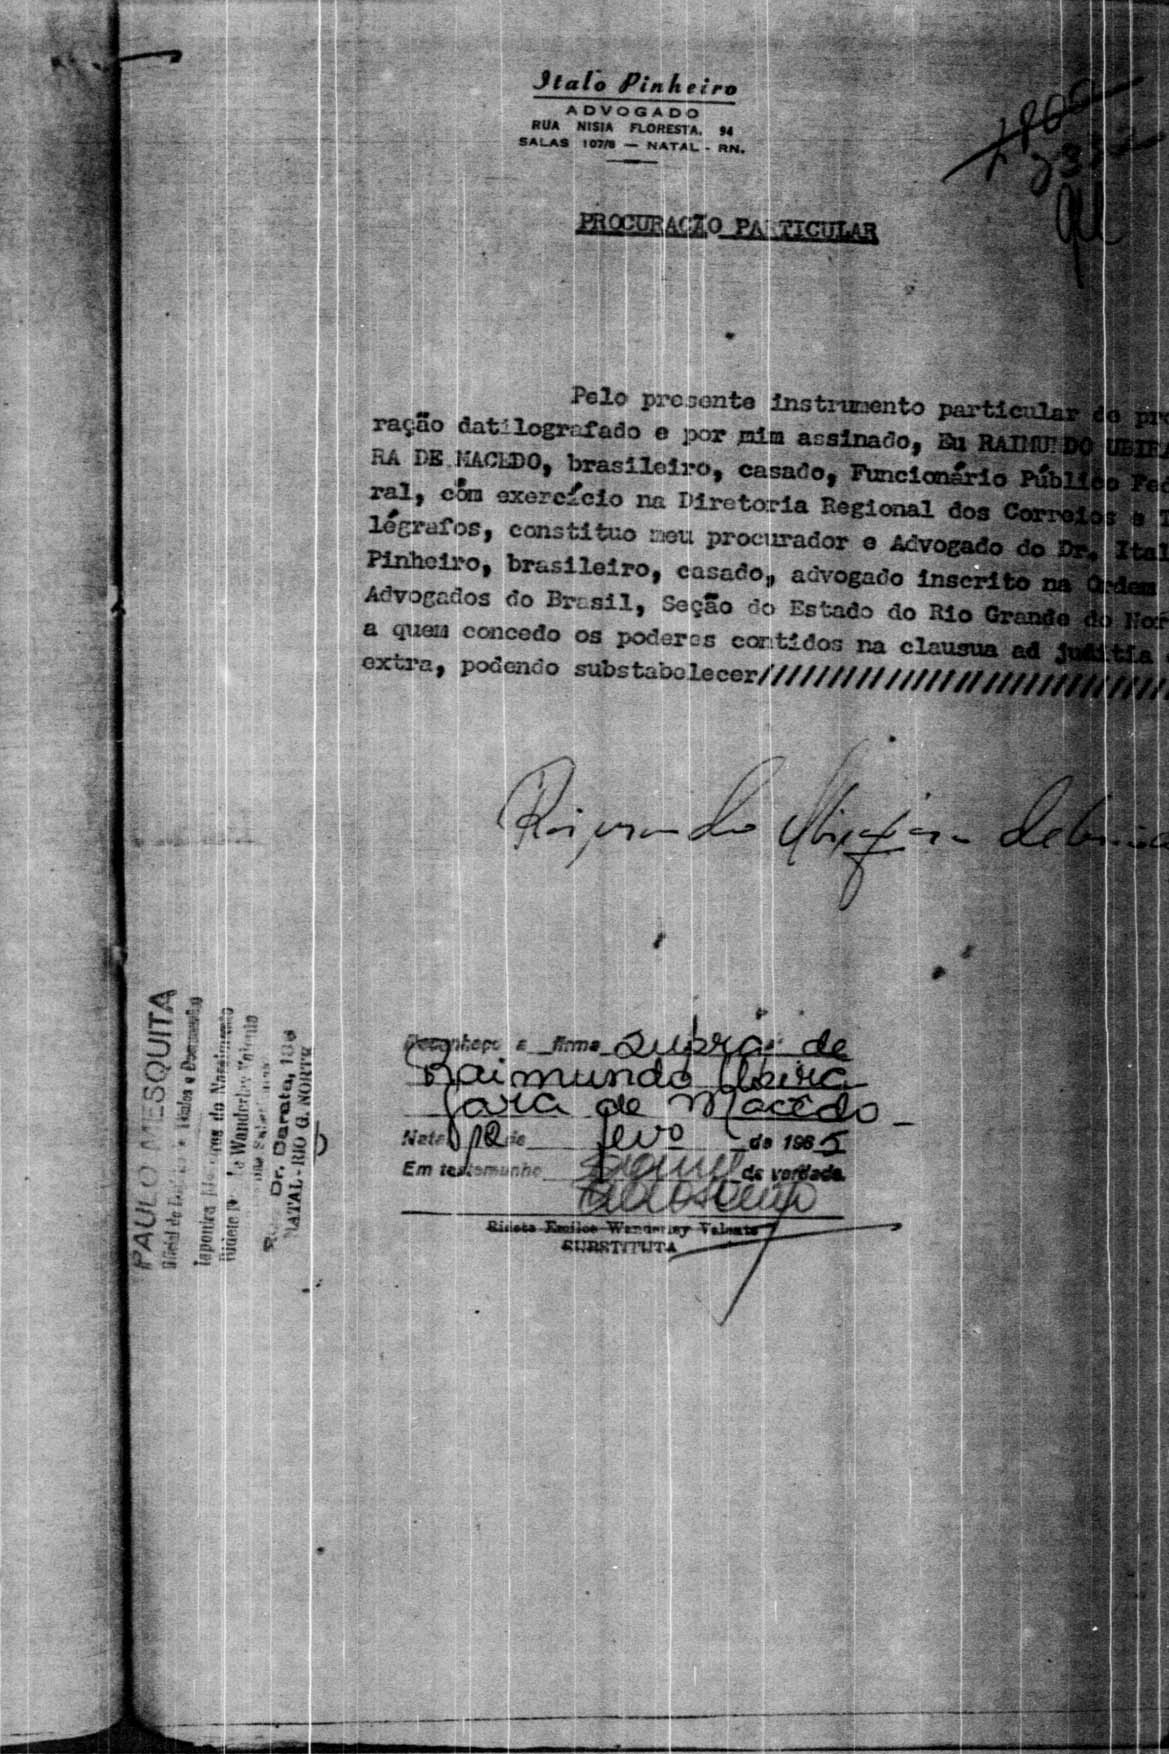 Italo Pinheiro
ADVOGADO
RUA NISIA FLORESTA, 94
SALAS 107/8 — NATAL - RN.
PROCURAÇÃO PARTICULAR
Pelo presente instrumento particular de
ração datilografado e por mim assinado, Eu RAIMUNDO
RA DE MACEDO, brasileiro, casado, Funcionário Público
ral, com exercício na Diretoria Regional dos Correios e
légrafos, constituo meu procurador e Advogado do Dr.
Pinheiro, brasileiro, casado, advogado inscrito na Ordem
Advogados do Brasil, Seção do Estado do Rio Grande do
a quem concedo os poderes contidos na clausua ad juditia
extra, podendo substabelecer////////////////////////////
Raimundo Ubirajara de
Reconheço a firma supra de
Raimundo Ubira
jara de Macêdo
Natal 12 de fevº de 1965
Em testemunho da verdade.
Wanderley Valente
SUBSTITUTA
PAULO MESQUITA
Wanderley Valente
Dr. Barata, 186
NATAL - RIO G. NORTE